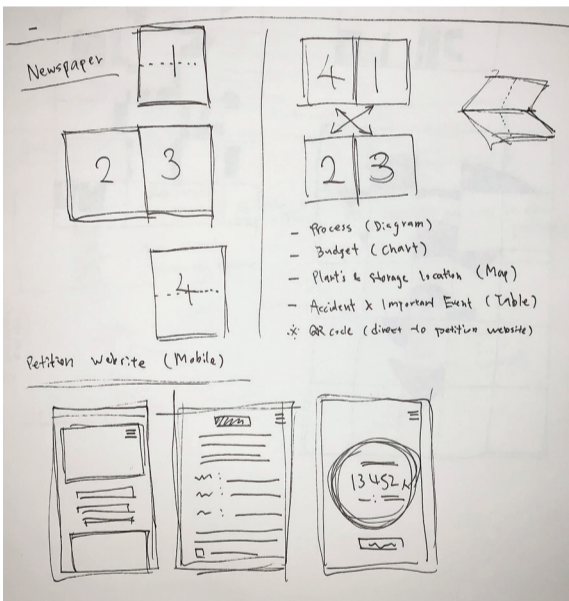 Newspaper
1
4 1
2 3
2 3
4
- Process (Diagram)
- Budget (Chart)
- Plant's & Storage location (Map)
- Accident & Important Event (Table)
※ QR code (direct to petition website)
Petition Website (Mobile)
13452